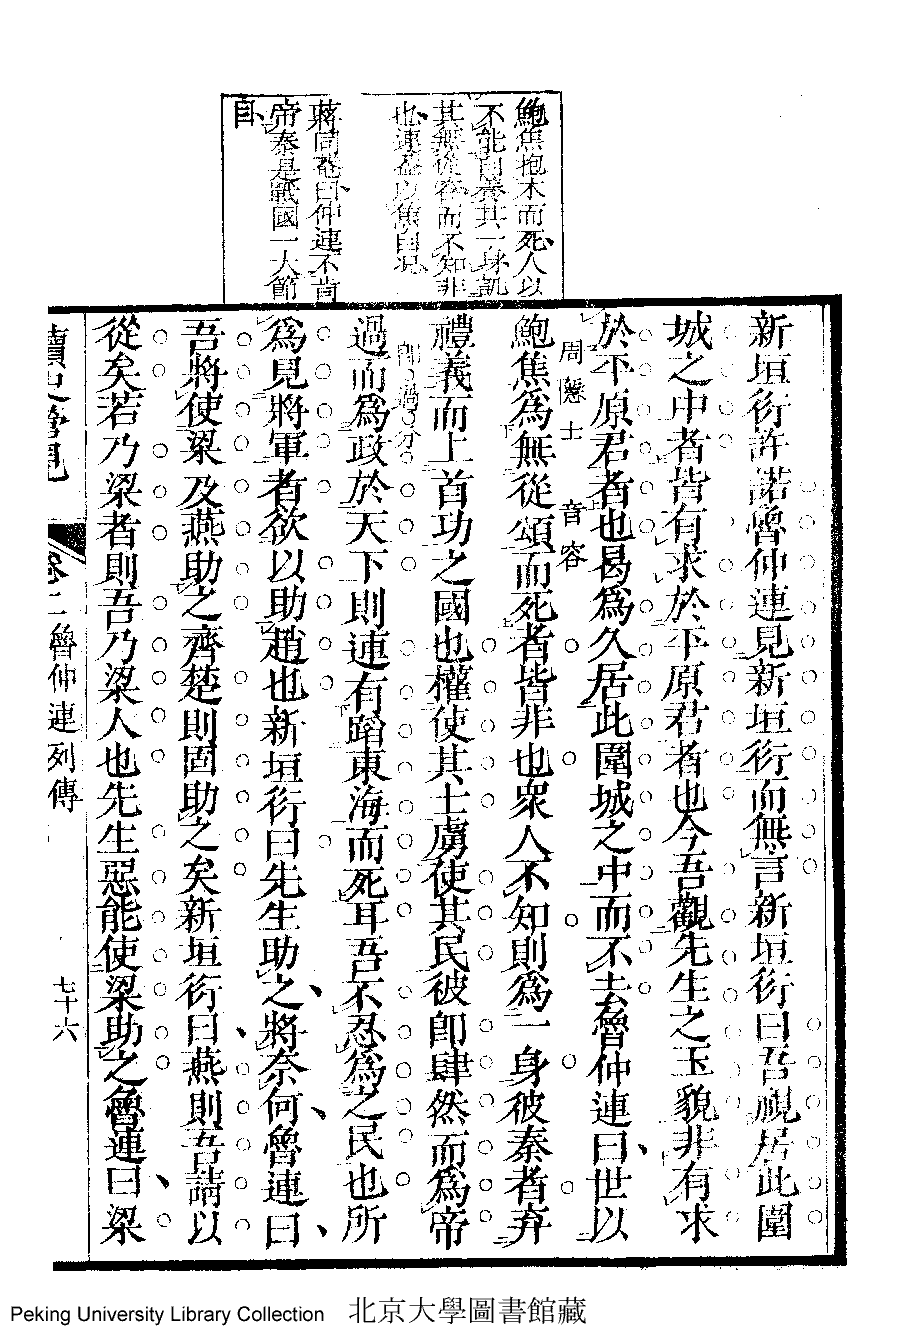 鮑焦抱木而死人以
不能自養其一身訊
其無從容而不知非
也連蓋以焦自況
蔣同菴曰仲連不肯
帝秦是戰國一大節
目
新垣衍許諾魯仲連見新垣衍而無言新垣衍曰吾視居此圍
城之中者皆有求於平原君者也今吾觀先生之玉貌非有求
於平原君者也曷爲久居此圍城之中而不去魯仲連曰世以
周 士 音容
鮑焦爲無從頌而死者皆非也衆人不知則爲一身彼秦者弃
禮義而上首功之國也權使其士虜使其民彼卽肆然而爲帝
過而爲政於天下則連有蹈東海而死耳吾不忍爲之民也所
爲見將軍者欲以助趙也新垣衍曰先生助之將奈何魯連曰
吾將使梁及燕助之齊楚則固助之矣新垣衍曰燕則吾請以
從矣若乃梁者則吾乃梁人也先生惡能使梁助之魯連曰梁
讀史管見 卷二 魯仲連列傳 七十六
Peking University Library Collection 北京大學圖書館藏